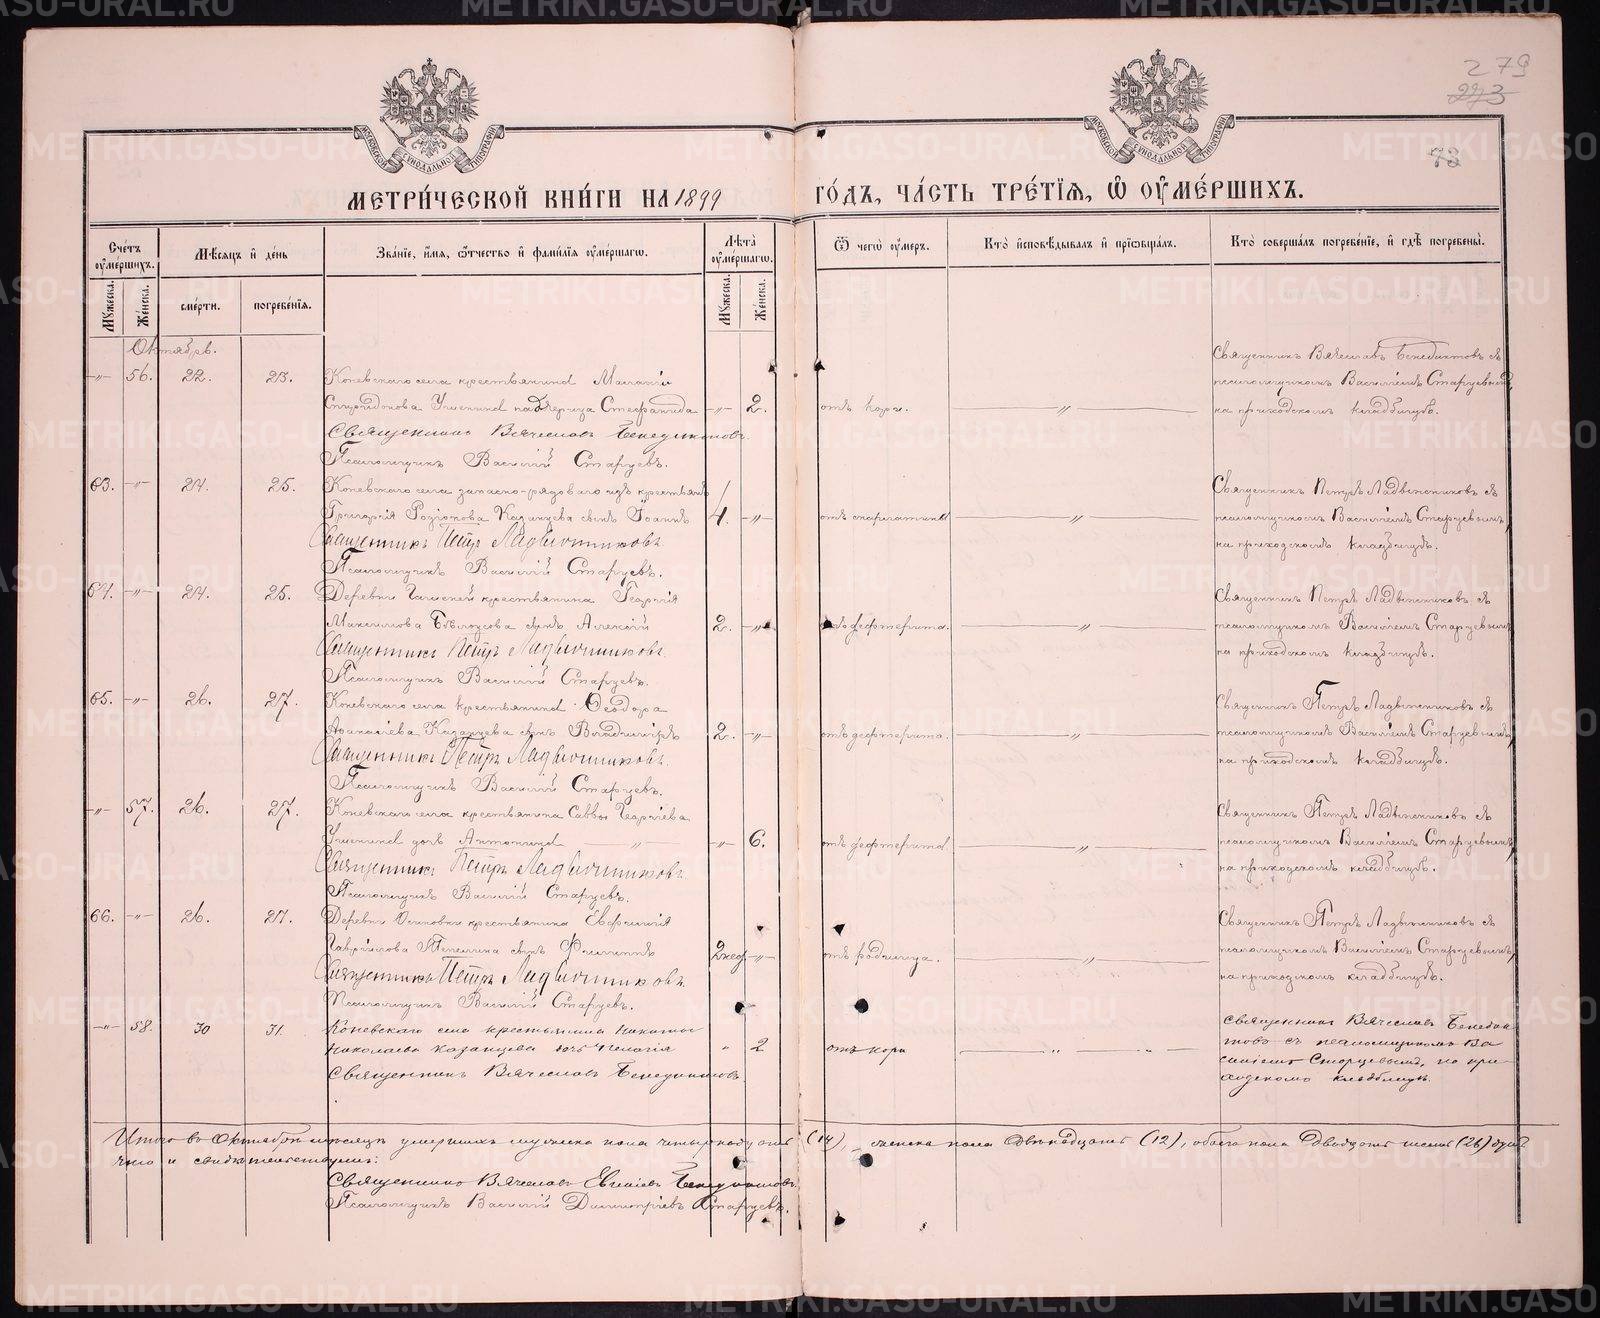 279
273
73
МЕТРИЧЕСКОЙ КНИГИ НА 1899 ГОДЪ, ЧАСТЬ ТРЕТІЯ, Ѿ ОУМЕРШИХЪ.
Счетъ оумершихъ.
Мѣсяцъ и день
Званіе, имя, отчество и фамилія оумершагѡ.
Лѣта оумершагѡ.
Ѿ чегѡ оумеръ.
Кто исповѣдывалъ и пріобщалъ.
Кто совершалъ погребеніе, и гдѣ погребены.
Мꙋжеска.
Женска.
смерти.
погребенія.
Мꙋжеска.
Женска.
Октябрь.
-„- 56. 22. 23. Коневскаго села крестьянина
Спиридонова Ушенина падчерица Стефанида -„- 2. отъ кори. -„-
Священникъ Вячеславъ Бенедиктовъ
Псаломщикъ Василій Старцевъ.
Священникъ Вячеславъ Бенедиктовъ съ
псаломщикомъ Василіемъ Старцевымъ,
на приходскомъ кладбищѣ.
63. -„- 24. 25. Коневскаго села запасно-рядоваго изъ крестьянъ
Григорія Родіонова Казанцева сынъ Іоаннъ 4. -„- отъ скарлатины -„-
Священникъ Петръ Ладыжниковъ
Псаломщикъ Василій Старцевъ.
Священникъ Петръ Ладыжниковъ съ
псаломщикомъ Василіемъ Старцевымъ,
на приходскомъ кладбищѣ.
64. -„- 24. 25. Деревни крестьянина Георгія
Максимова Бѣлоусова сынъ Алексій 2. -„- -„-
Священникъ Петръ Ладыжниковъ
Псаломщикъ Василій Старцевъ.
Священникъ Петръ Ладыжниковъ съ
псаломщикомъ Василіемъ Старцевымъ
на приходскомъ кладбищѣ.
65. -„- 26. 27. Коневскаго села крестьянина Ѳеодора
Казанцева сынъ Владиміръ 2. -„- отъ дефтерита. -„-
Священникъ Петръ Ладыжниковъ.
Псаломщикъ Василій Старцевъ.
Священникъ Петръ Ладыжниковъ съ
псаломщикомъ Василіемъ Старцевымъ,
на приходскомъ кладбищѣ.
-„- 57. 26. 27. Коневскаго села крестьянина Саввы Георгіева
Ушенина дочь Антонина -„- 6. отъ дефтерита -„-
Священникъ Петръ Ладыжниковъ
Псаломщикъ Василій Старцевъ.
Священникъ Петръ Ладыжниковъ съ
псаломщикомъ Василіемъ Старцевымъ,
на приходскомъ кладбищѣ.
66. -„- 26. 27. Деревни Осиновки крестьянина Евфимія
Гаврилова сынъ Филиппъ 2 нед. -„- отъ родимца. -„-
Священникъ Петръ Ладыжниковъ
Псаломщикъ Василій Старцевъ.
Священникъ Петръ Ладыжниковъ съ
псаломщикомъ Василіемъ Старцевымъ,
на приходскомъ кладбищѣ.
-„- 58. 30 31. Коневскаго села крестьянина
Николаева Казанцева дочь Пелагія „ 2 отъ кори
Священникъ Вячеславъ Бенедиктовъ
Священникъ Вячеславъ Бенедик
товъ съ псаломщикомъ Ва
силіемъ Старцевымъ, на при
ходскомъ кладбищѣ.
Итого въ Октябрѣ мѣсяцѣ умершихъ мужеска пола четырнадцать (14), женска пола двѣнадцать (12), обоего пола двадцать шесть (26) душъ
что и свидѣтельствуемъ:
Священникъ Вячеславъ Бенедиктовъ.
Псаломщикъ Василій Димитріевъ Старцевъ.
METRIKI.GASO-URAL.RU